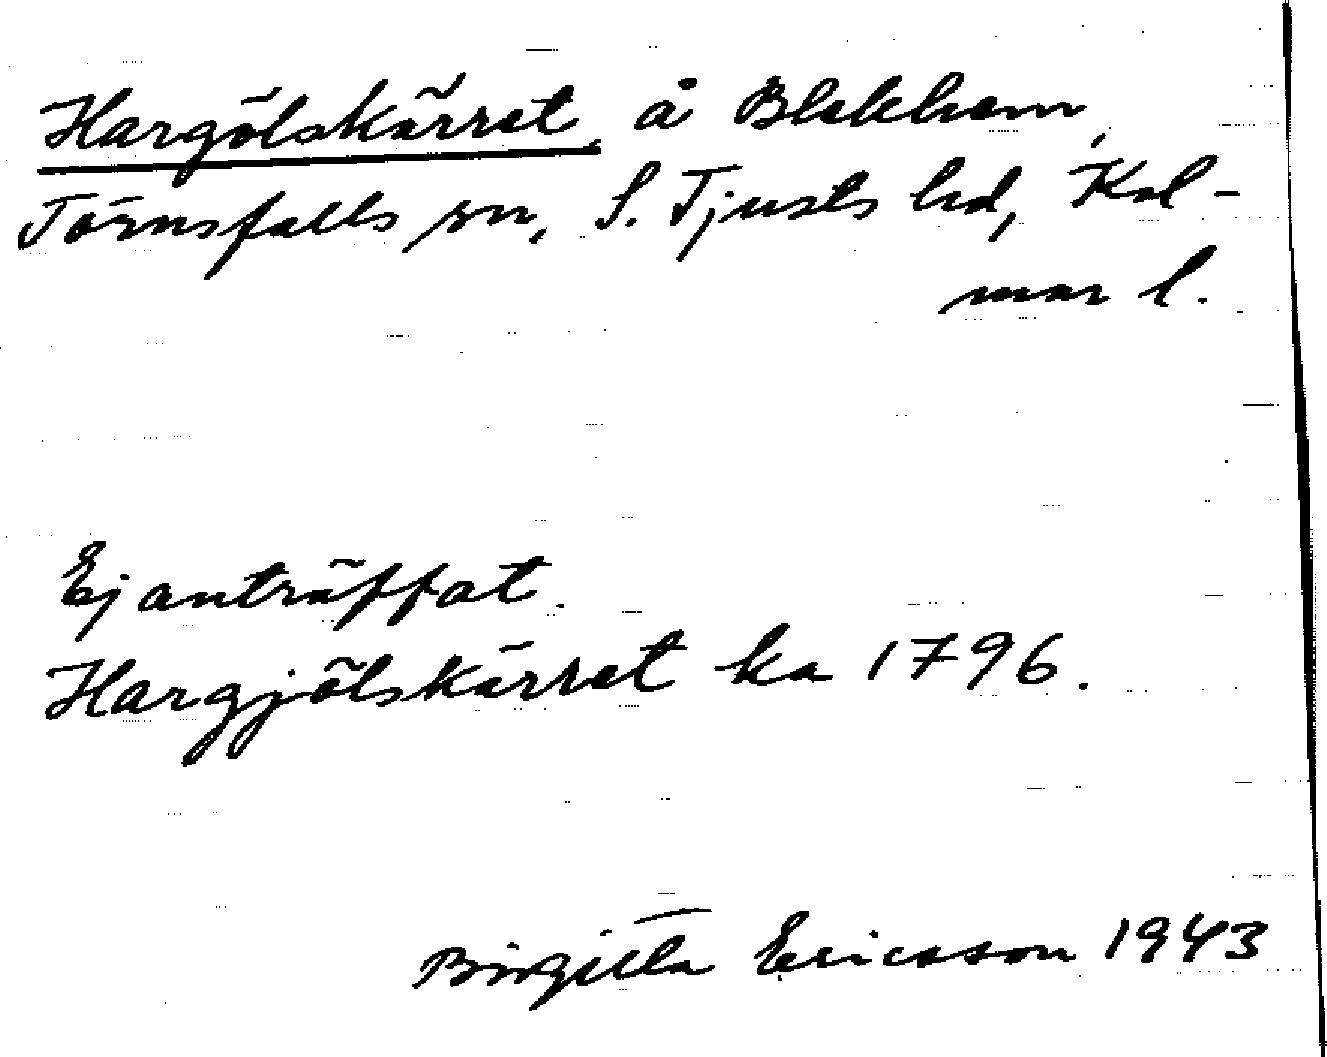 Hargölskärret, å Blekhem,
Törnsfalls sn, S. Tjusts hd, Kal-
mar l.
Ej anträffat.
Hargjölskärret ka 1796.
Birgitta Ericsson 1943